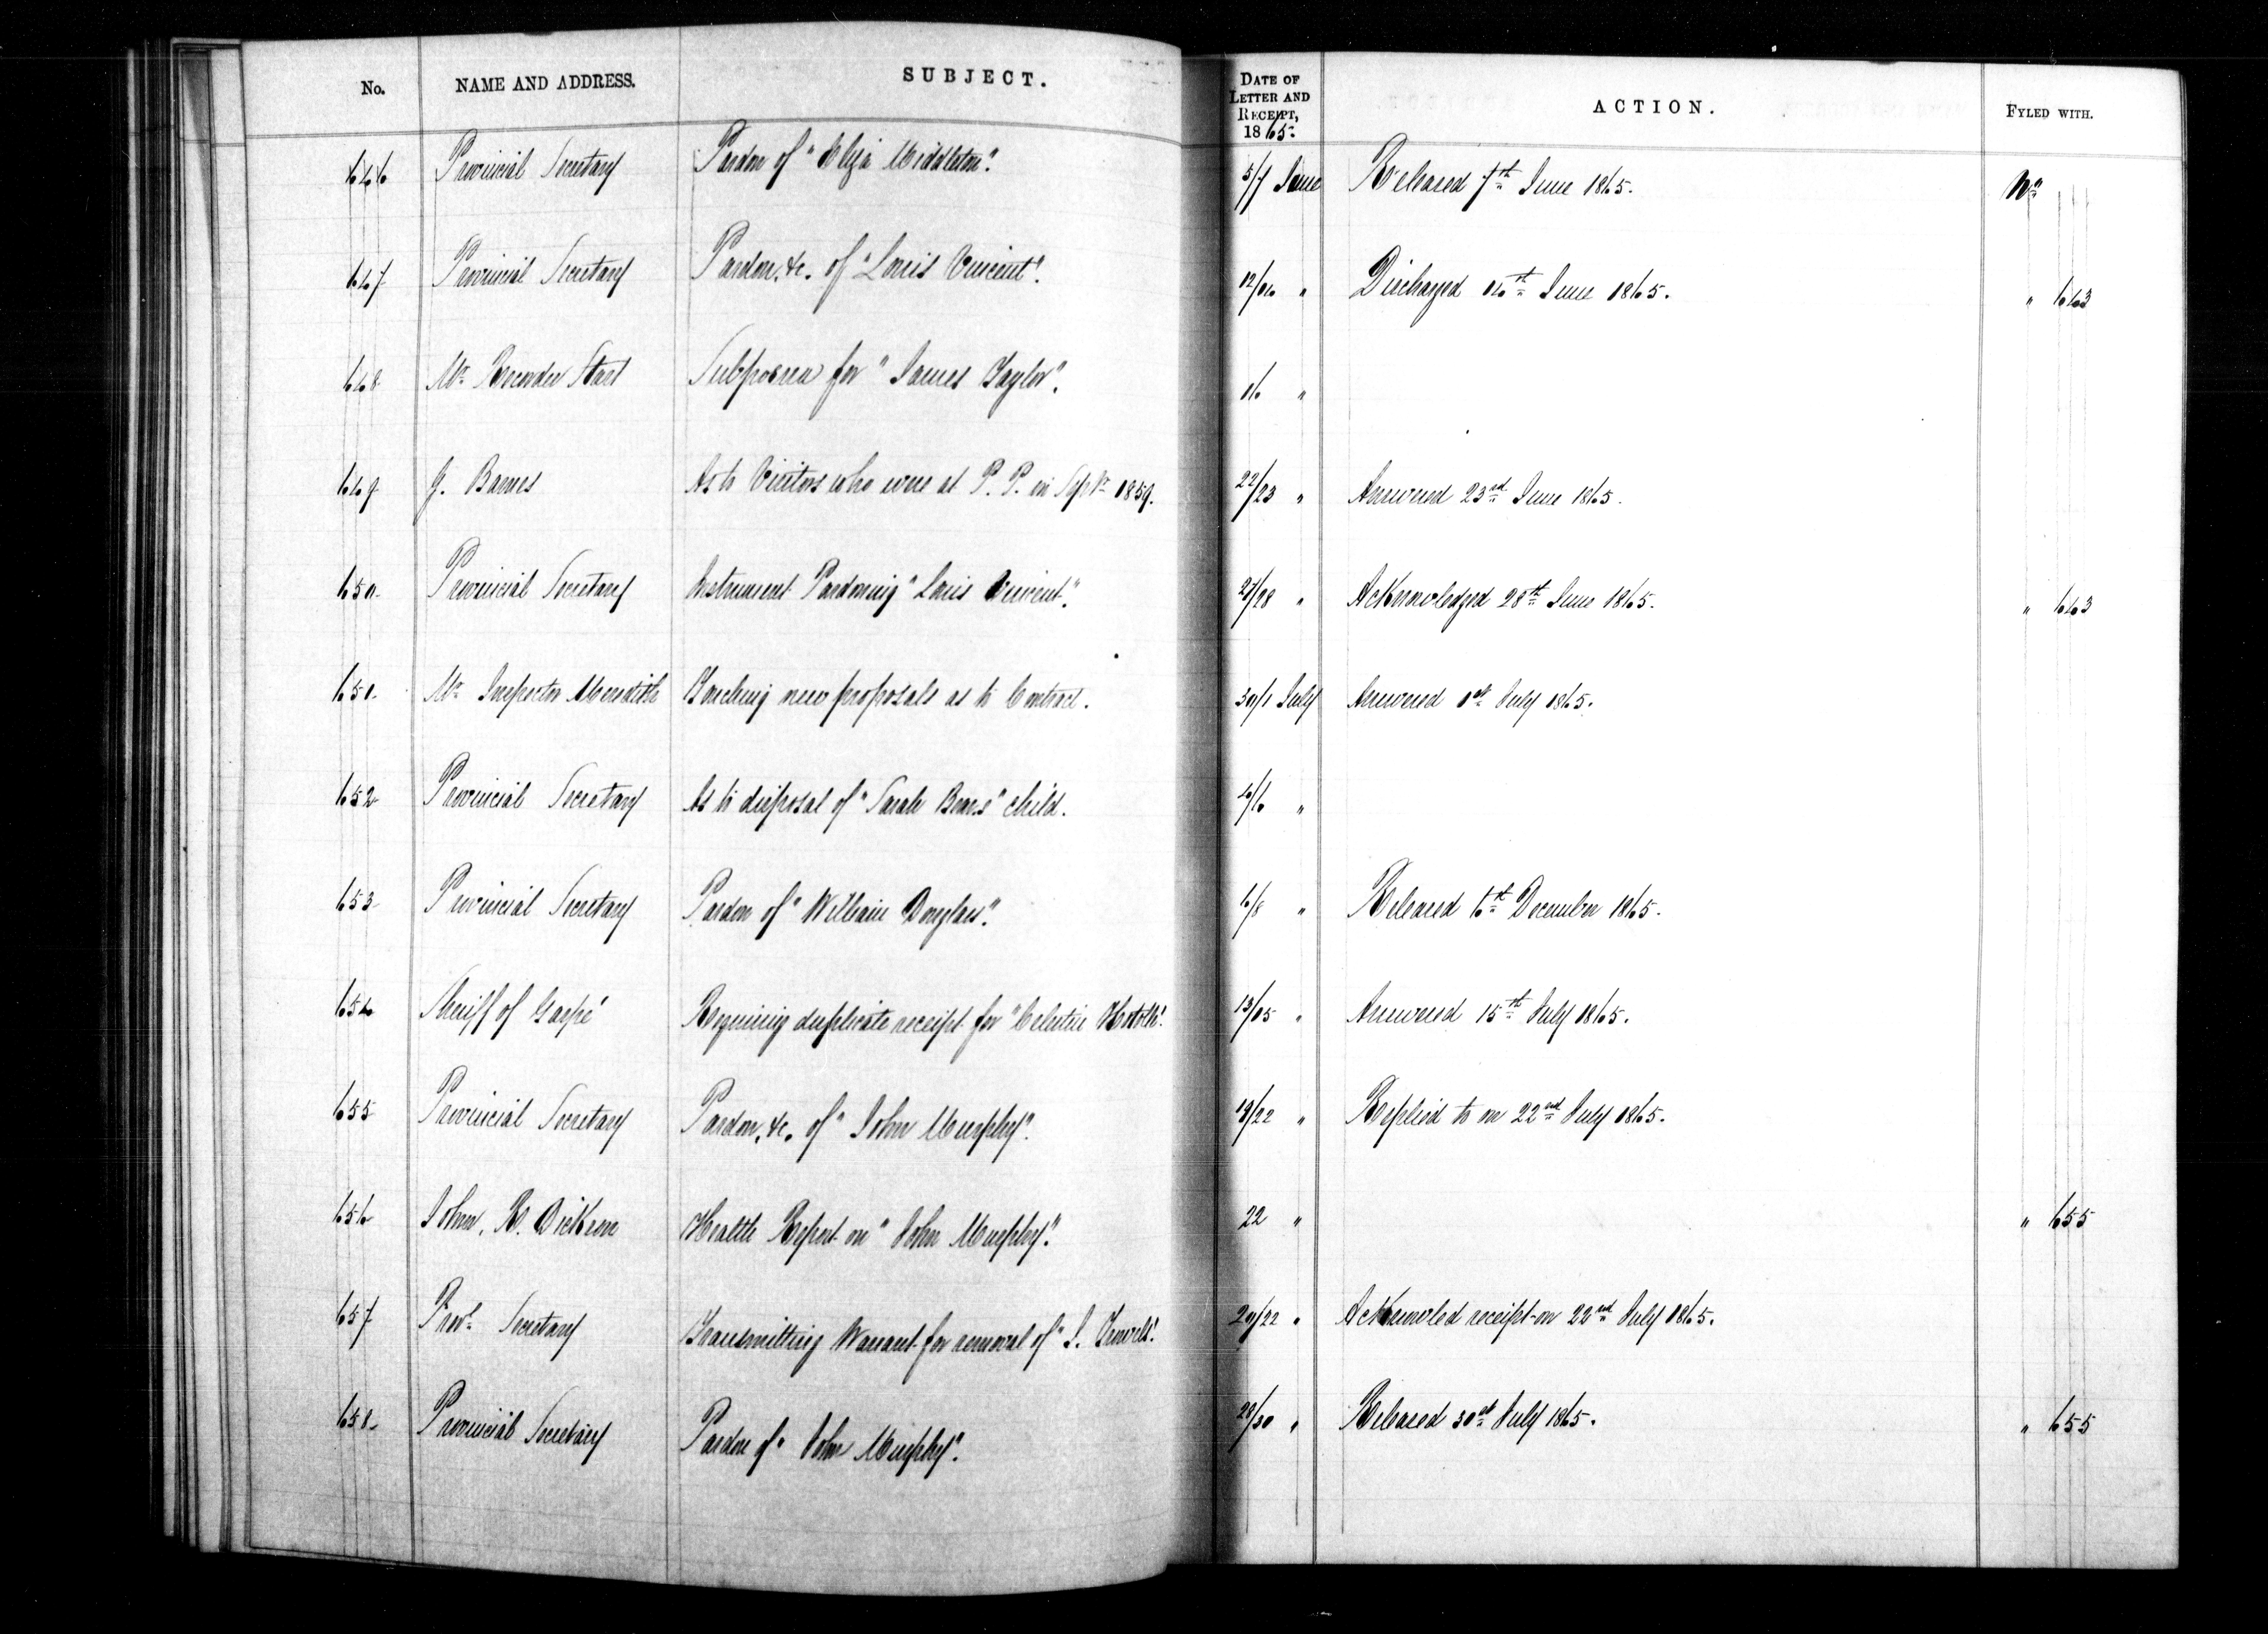 No. NAME AND ADDRESS. SUBJECT. DATE OF LETTER AND RECEIPT, 1865. ACTION. FYLED WITH.
646 Provincial Secretary Pardon of "Eliza Middleton". 5/7 June Released 7th June 1865. No
647 Provincial Secretary Pardon, &c. of "Louis Vincent". 12/14 " Discharged 14th June 1865. " 643
648 Mr Recorder Start Subpoena for "James Taylor". 16 "
649 J. Barnes As to Visitors who were at P. P. in Septr 1859. 22/23 " Answered 23rd June 1865.
650 Provincial Secretary Instrument Pardoning "Louis Vincent". 27/28 " Acknowledged 28th June 1865. " 643
651 Mr Inspector Meredith Touching new proposals as to Contract. 30/1 July Answered 1st July 1865.
652 Provincial Secretary As to disposal of "Sarah Bears" child. 4/6 "
653 Provincial Secretary Pardon of "William Douglass". 6/8 " Released 6th December 1865.
654 Sheriff of Gaspé Requiring duplicate receipt for "Celestin 13/15 " Answered 15th July 1865.
655 Provincial Secretary Pardon, &c. of "John Murphy". 19/22 " Replied to on 22nd July 1865.
656 John. R. Dickson Health Report on "John Murphy". 22 " " 655
657 Provl Secretary Transmitting Warrant for removal of "J. 20/22 " Acknowled receipt on 22nd July 1865.
658 Provincial Secretary Pardon of "John Murphy". 28/30 " Released 30th July 1865. " 655